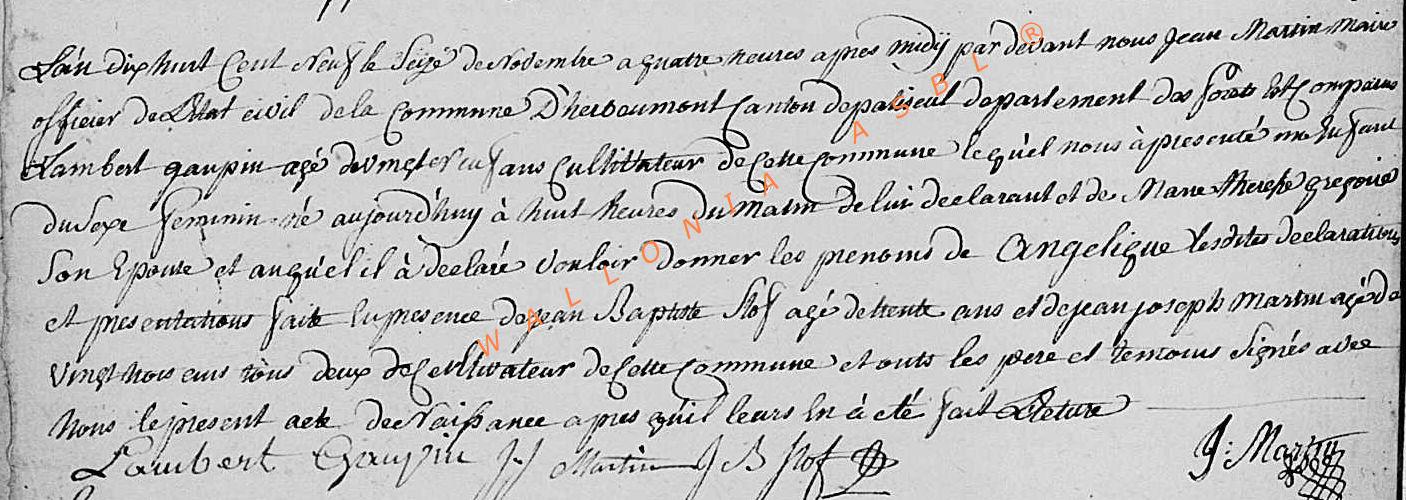 L'an dix huit Cent Neuf le Seize de Novembre a quatre heures apres midy par devant nous Jean Martin Maire
officier de L'Etat civil de la Commune D'herbeumont Canton de paliseul departement des forets Est Comparus
Lambert gaupin agé de vingt neuf ans Cultivateur de Cette Commune lequel nous à presenté un Enfant
du Sexe feminin né aujourd'huy à huit heures du Matin de lui declarant et de Marie therese gregoire
Son Epouse et auquel il à declaré vouloir donner les prenoms de Angelique lesdites declarations
et presentations faite En presence de jean Baptiste Stof agé de trente ans et de jean joseph Martin agé de
vingt trois ans tous deux Cultivateur de Cette Commune et onts les pere et temoins Signés avec
Nous le present acte de Naissance apres qu'il leurs En à eté fait Lecture
Lambert Gaupin J J Martin J B Stof J: Martin
WALLONIA ASBL ®